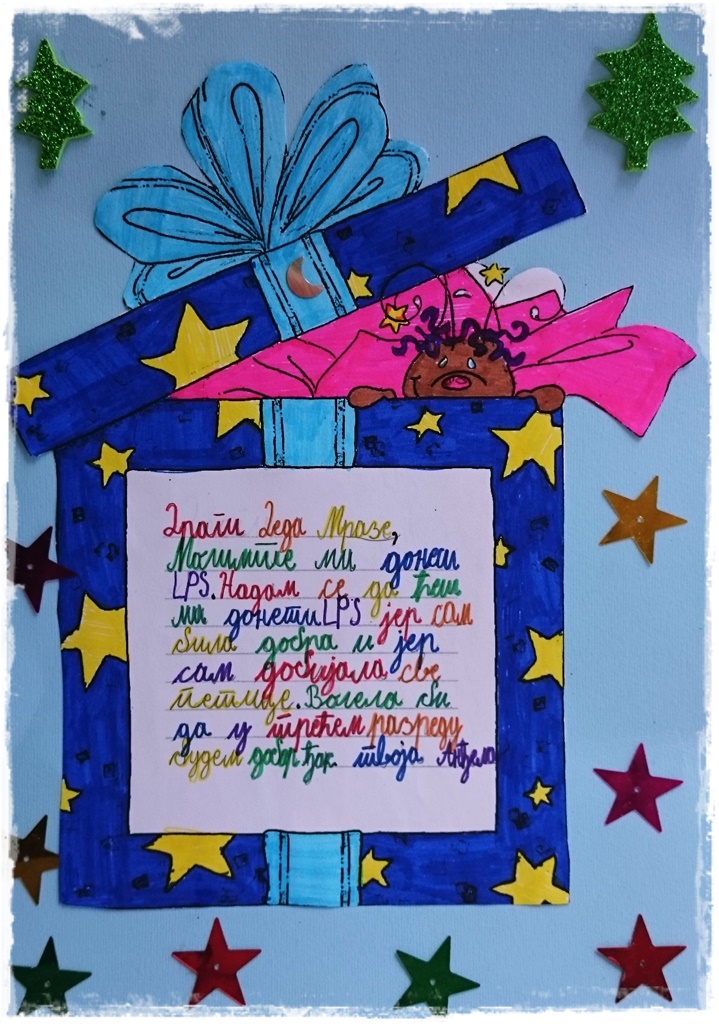 Драги Деда Мразе,
Молим те ми донеси
LPS. Надам се да ћеш
ми донети LPS јер сам
била добра и јер
сам добијала све
петице. Волела би
да у трећем разреду
будем добар ђак твоја Анђела